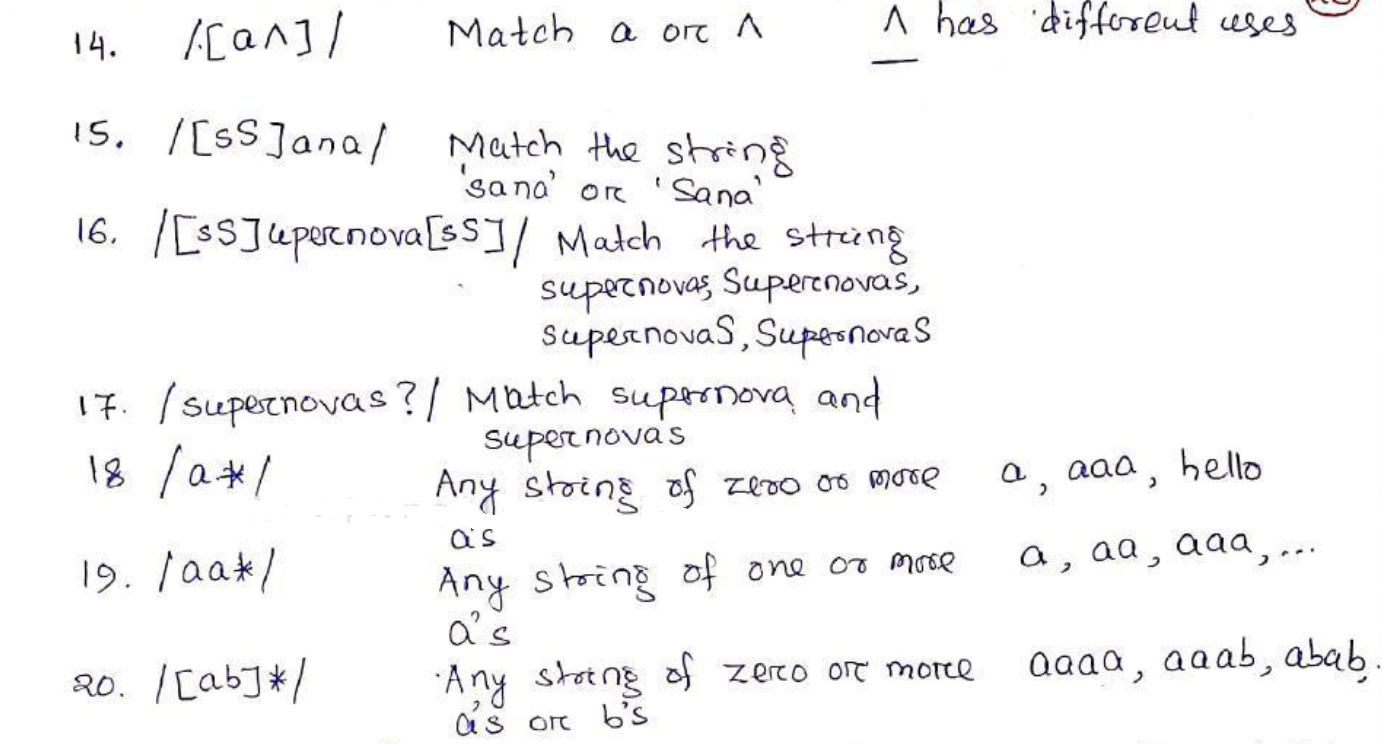 14. /[a^]/ Match a or ^ ^ has different uses
15. /[sS]ana/ Match the string
'sana' or 'Sana'
16. /[sS]upernova[sS]/ Match the string
supernovas, Supernovas,
supernovaS, SupernovaS
17. /supernovas?/ Match supernova and
supernovas
18 /a*/ Any string of zero or more a, aaa, hello
a's
19. /aa*/ Any string of one or more a, aa, aaa, ...
a's
20. /[ab]*/ Any string of zero or more aaaa, aaab, abab.
a's or b's